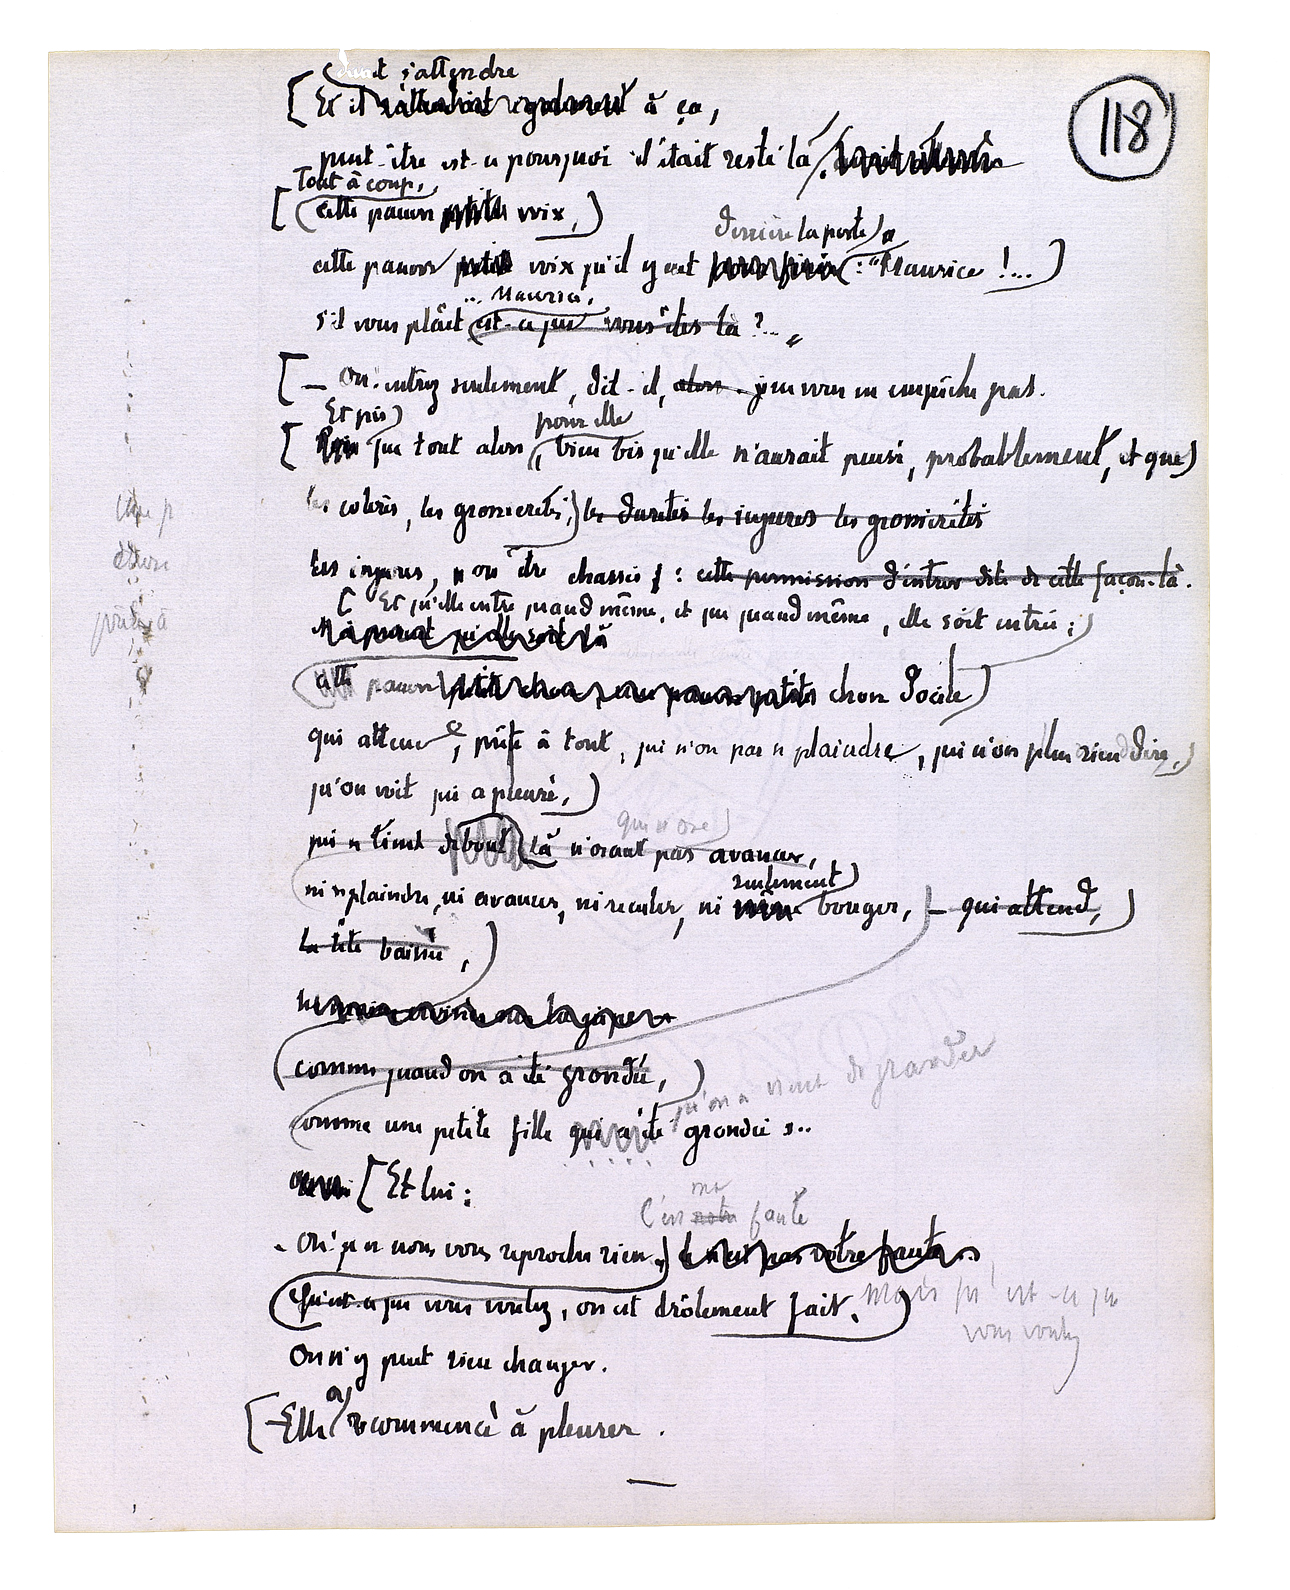 devait s'attendre
118
[ Et il s'attendait également à ça,
peut-être est-ce pourquoi il était resté là
Tout à coup,
[ (cette pauvre petite voix,)
derrière la porte)
cette pauvre petite voix qu'il y eut pour finir (: "Maurice !...)
... Maurice,
s'il vous plaît est-ce que vous êtes là ?... "
[ — Oh! entrez seulement, dit-il, alors je ne vous en empêche pas.
Et puis) pour elle
[ Puis que tout alors, bien bas qu'elle n'aurait pensé, probablement, et que)
les colères, les grossièretés,) les duretés les injures les grossièretés
les injures, non être chassée : cette permission d'entrer dite de cette façon-là.
[ Et qu'elle entre quand même, et que quand même, elle soit entrée ;)
N'empêche qu'elle soit là
cette pauvre petite chose, une pauvre petite chose docile)
qui attend, prête à tout, qui n'ose pas se plaindre, qui n'ose plus rien dire,)
qu'on voit qui a pleuré,)
qui n'ose)
qui se tient debout là n'osant pas avancer,
seulement)
ni se plaindre, ni avancer, ni reculer, ni même bouger, — qui attend,)
la tête baissée,)
les mains croisées sur la jupe
(comme quand on a été grondée,)
qu'on a vient de gronder
comme une petite fille qui a été grondée...
[ Et lui :
ma
C'est notre faute
- Oh! je ne vous reproche rien,) ce n'est pas votre faute...
(Qu'est-ce que vous voulez, on est drôlement fait.) Mais qu'est-ce que
vous voulez
On n'y peut rien changer.
a
[ — Elle recommencé à pleurer.
—